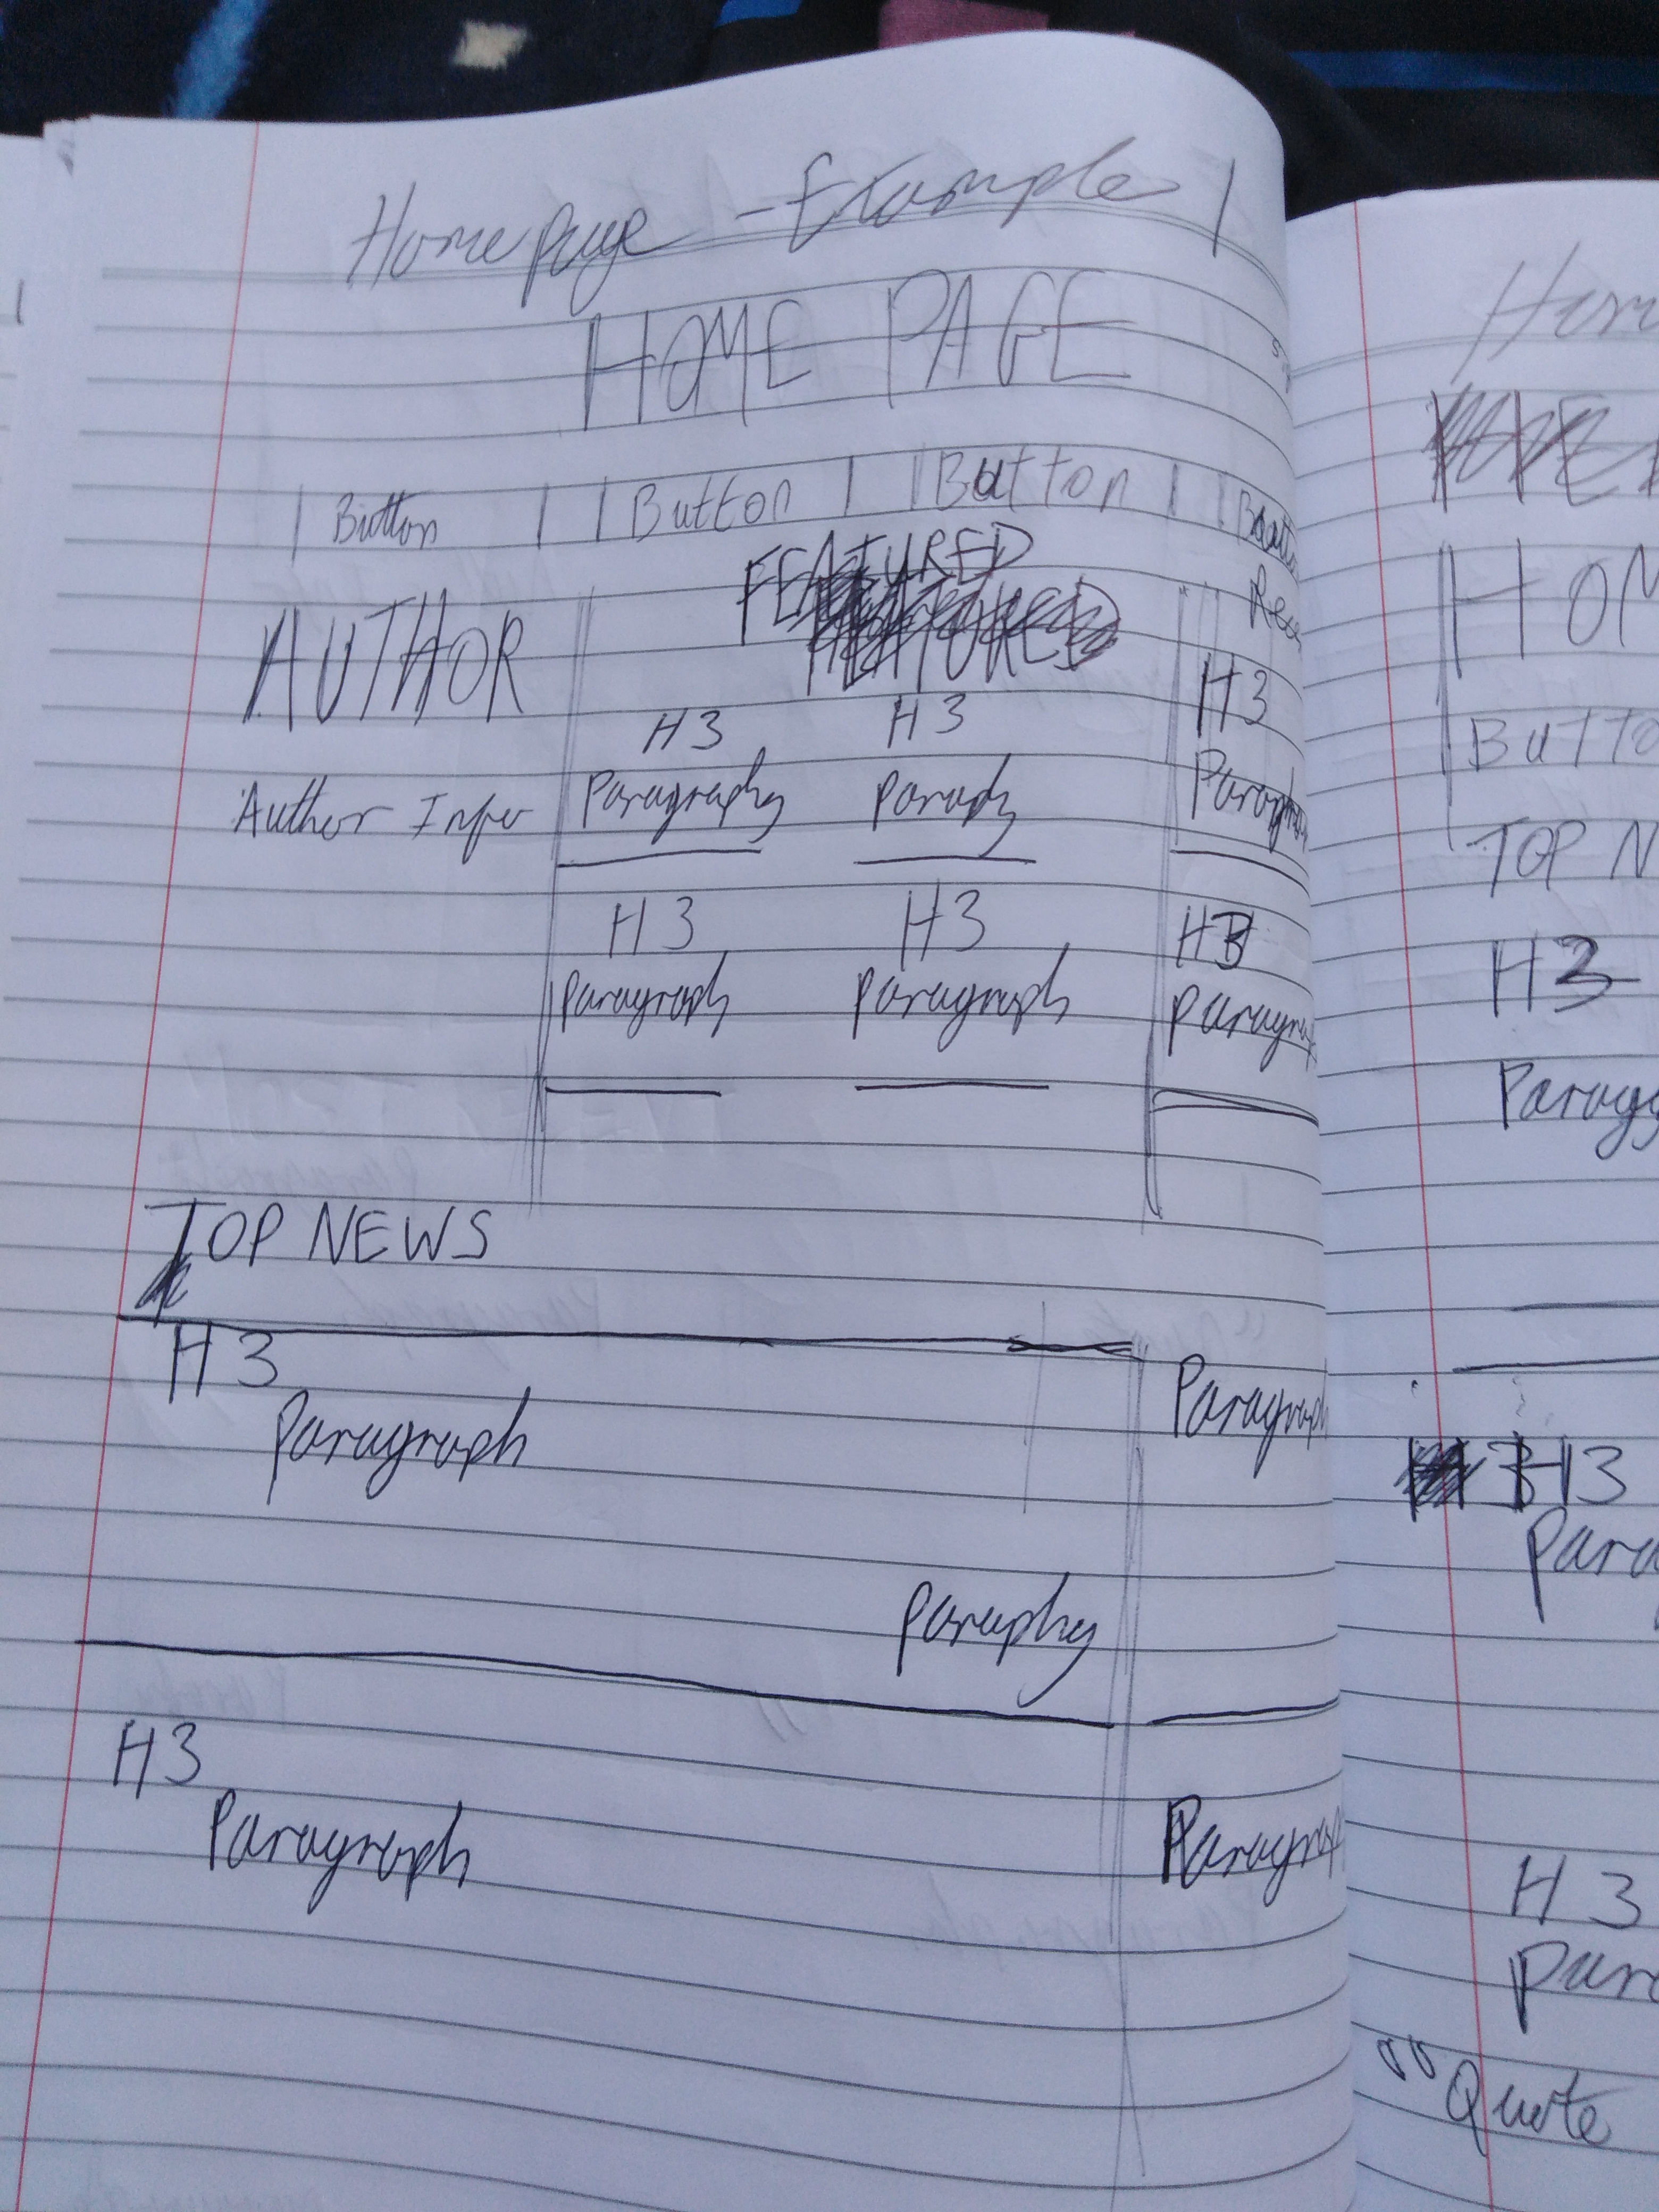 Homepage - Example 1
HOME PAGE
Button Button Button
FEATURED
AUTHOR
H3 H3 H3
Author Info Paragraphy Paraphy
H3 H3 H3
Paragraph Paragraph Paragrap
TOP NEWS
H3
Paragraph Paragraph
Paraphy
H3
Paragraph Paragrap
Hom
HOM
Butto
TOP N
H3
Paragg
H3
Para
H3
Par
"Quote